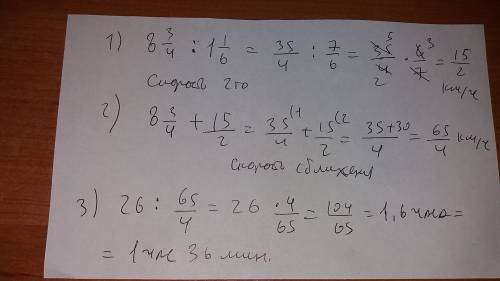 1) 8 3/4 : 1 1/6 = 35/4 : 7/6 = 35/4 · 6/7 = 15/2 км/ч
Скорость 2го
2) 8 3/4 + 15/2 = 35/4 + 15/2 = 35+30/4 = 65/4 км/ч
Скорость сближения
3) 26 : 65/4 = 26 · 4/65 = 104/65 = 1,6 часа =
= 1 час 36 мин.